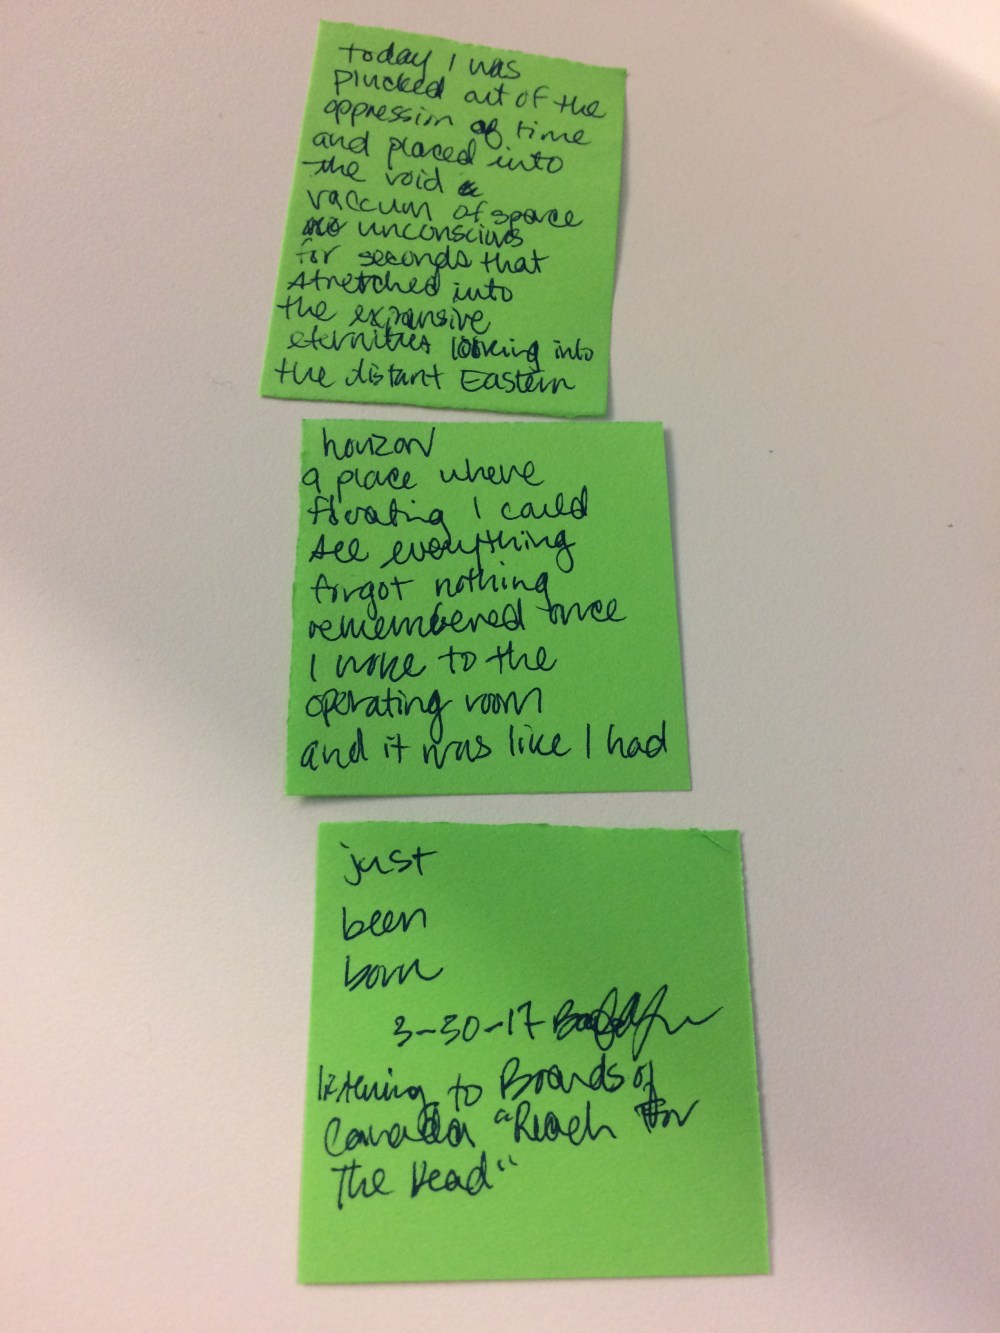 today I was
plucked out of the
oppression of time
and placed into
the void a
vaccum of space
unconscious
for seconds that
stretched into
the expansive
eternities looking into
the distant Eastern
horizon
a place where
floating I could
see everything
forgot nothing
remembered once
I woke to the
operating room
and it was like I had
just
been
born
3-30-17
listening to Boards of
Canada "Reach for
The Dead"